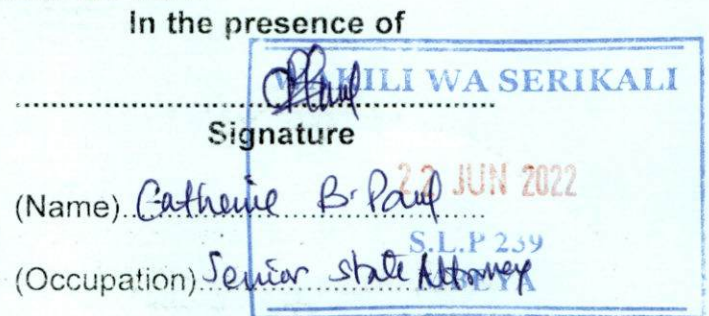 In the presence of
WAKILI WA SERIKALI
Signature
22 JUN 2022
(Name) Catherine B. Paul
S.L.P 239
(Occupation) Senior State Attorney
MBEYA